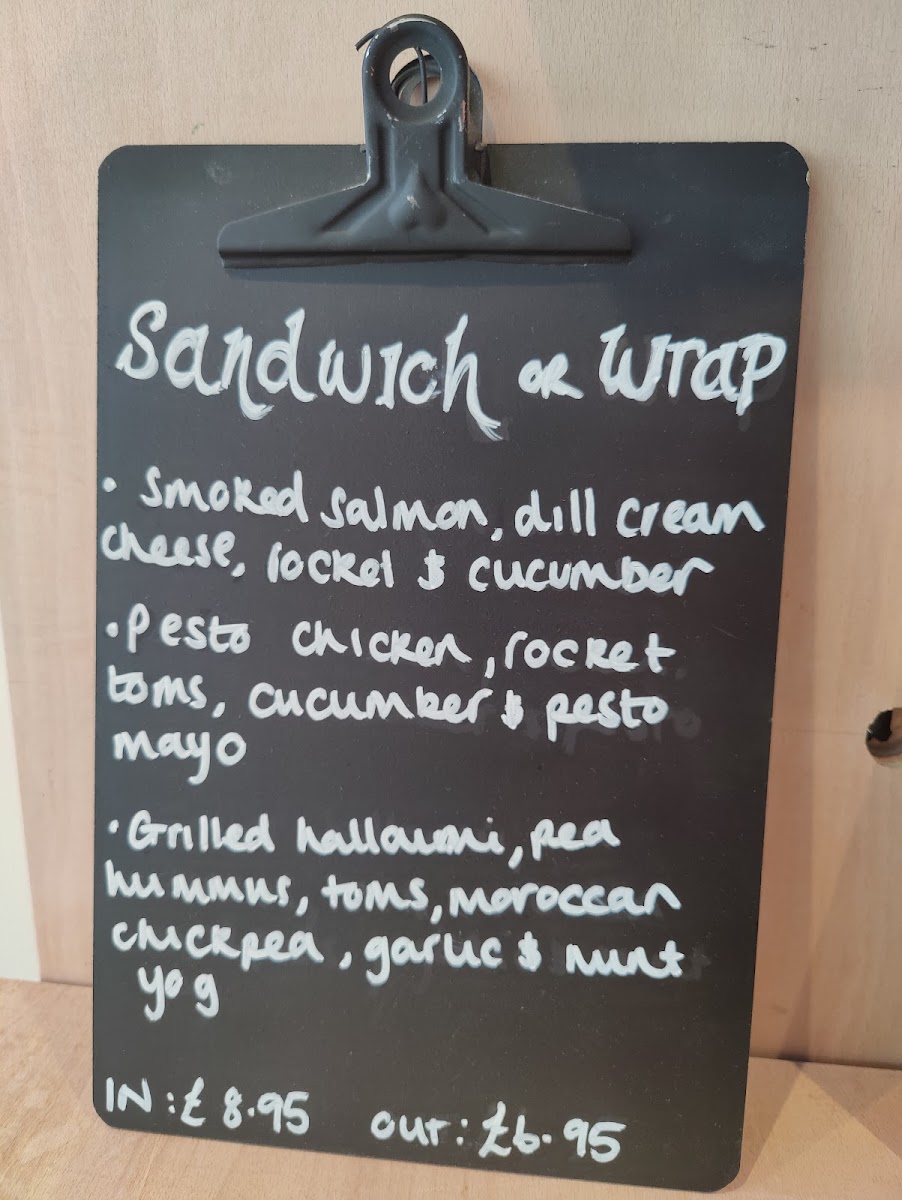 Sandwich or Wrap
• Smoked salmon, dill cream
cheese, rocket & cucumber
• Pesto chicken, rocket
toms, cucumber & pesto
mayo
• Grilled halloumi, pea
hummus, toms, moroccan
chickpea, garlic & mint
yog
IN: £8.95 OUT: £6.95